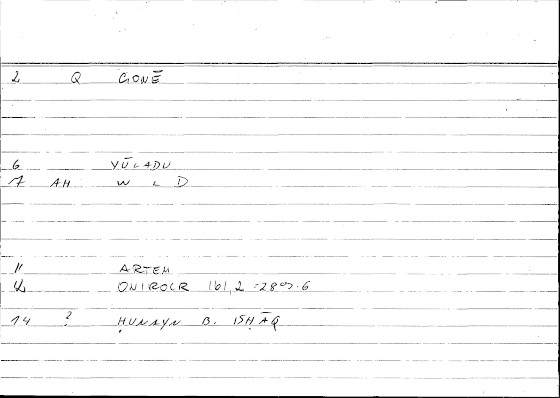 2 Q GONĒ
6 YŪLADU
7 AH W L D
11 ARTEM
12 ONIROCR 161,2
14 ? ḤUNAYN B. ISḤĀQ